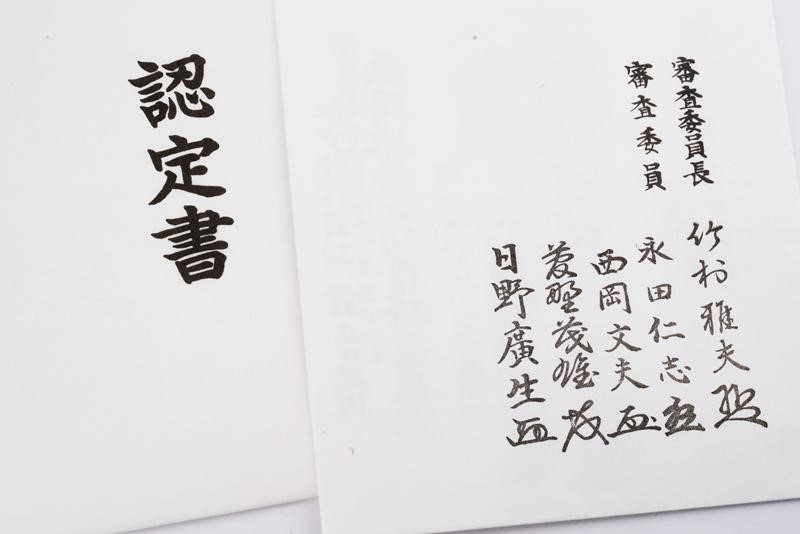 認定書
審査委員長
竹村雅夫
審査委員
永田仁志
西岡文夫
菱野茂雄
日野廣生